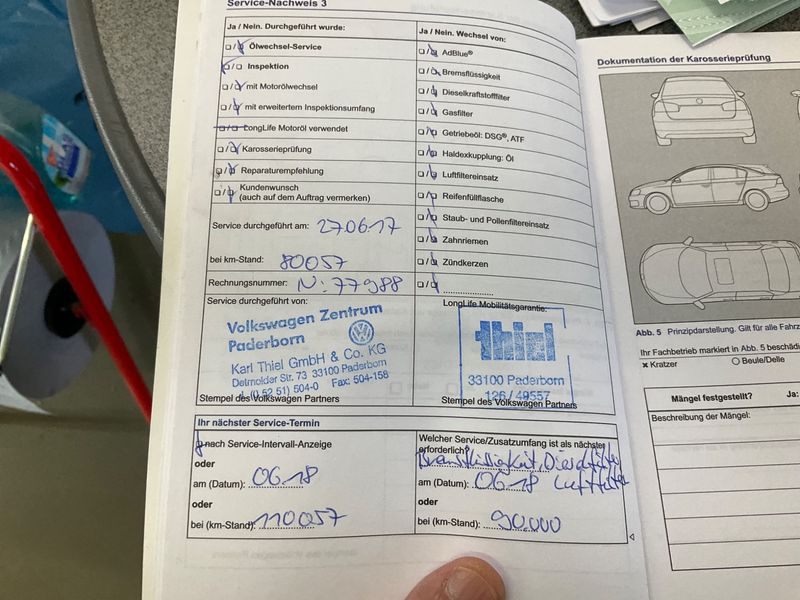 Service-Nachweis 3
Ja / Nein. Durchgeführt wurde:
Ölwechsel-Service
Inspektion
mit Motorölwechsel
mit erweitertem Inspektionsumfang
LongLife Motoröl verwendet
Karosserieprüfung
Reparaturempfehlung
Kundenwunsch
(auch auf dem Auftrag vermerken)
Service durchgeführt am: 27.06.17
bei km-Stand: 80057
Rechnungsnummer: N: 77988
Service durchgeführt von:
Volkswagen Zentrum
Paderborn
Karl Thiel GmbH & Co. KG
Detmolder Str. 73 33100 Paderborn
(0 52 51) 504-0 Fax: 504-158
Stempel des Volkswagen Partners
Ja / Nein. Wechsel von:
AdBlue®
Bremsflüssigkeit
Dieselkraftstofffilter
Gasfilter
Getriebeöl: DSG®, ATF
Haldexkupplung: Öl
Luftfiltereinsatz
Reifenfüllflasche
Staub- und Pollenfiltereinsatz
Zahnriemen
Zündkerzen
LongLife Mobilitätsgarantie:
thiel
33100 Paderborn
126 / 49557
Stempel des Volkswagen Partners
Ihr nächster Service-Termin
nach Service-Intervall-Anzeige
oder
am (Datum): 06.18
oder
bei (km-Stand): 110057
Welcher Service/Zusatzumfang ist als nächster
erforderlich?
Luftfilter
am (Datum): 06.18
oder
bei (km-Stand): 90.000
Dokumentation der Karosserieprüfung
Abb. 5 Prinzipdarstellung. Gilt für alle Fahrz
Ihr Fachbetrieb markiert in Abb. 5 beschädi
Kratzer
Beule/Delle
Mängel festgestellt? Ja:
Beschreibung der Mängel: